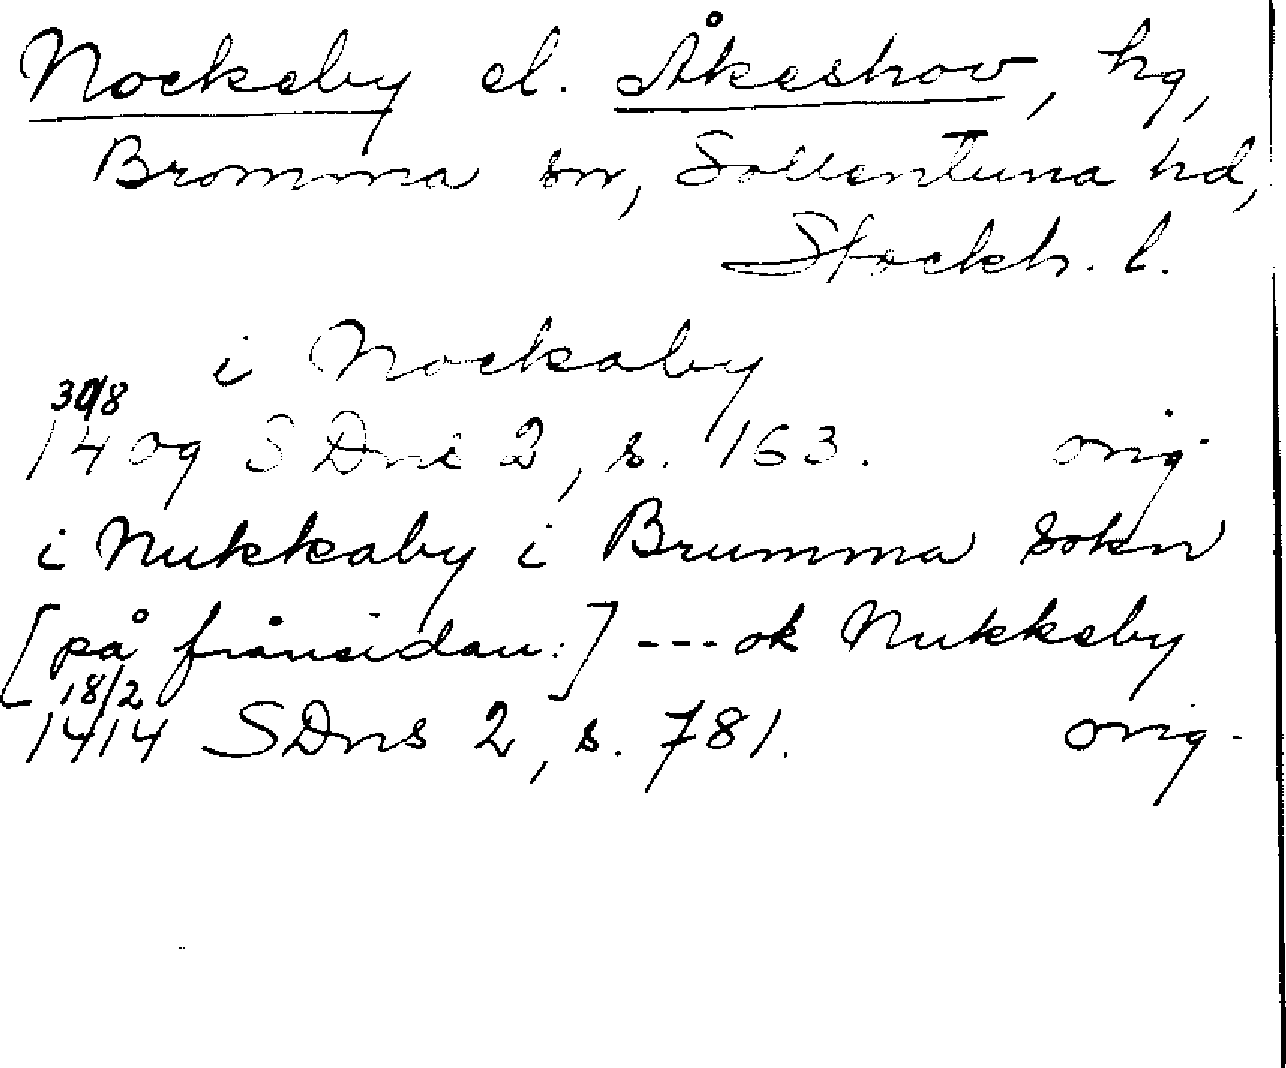 Nockeby el. Åkeshov, hg,
Bromma sn, Sollentuna hd,
Stockh. l.
i Nockaby
30/8
1409 SDns 2, s. 163. orig.
i Nukkaby i Brumma sokn
[på frånsidan:] --- ok Nukkeby
18/2
1414 SDns 2, s. 781. orig.